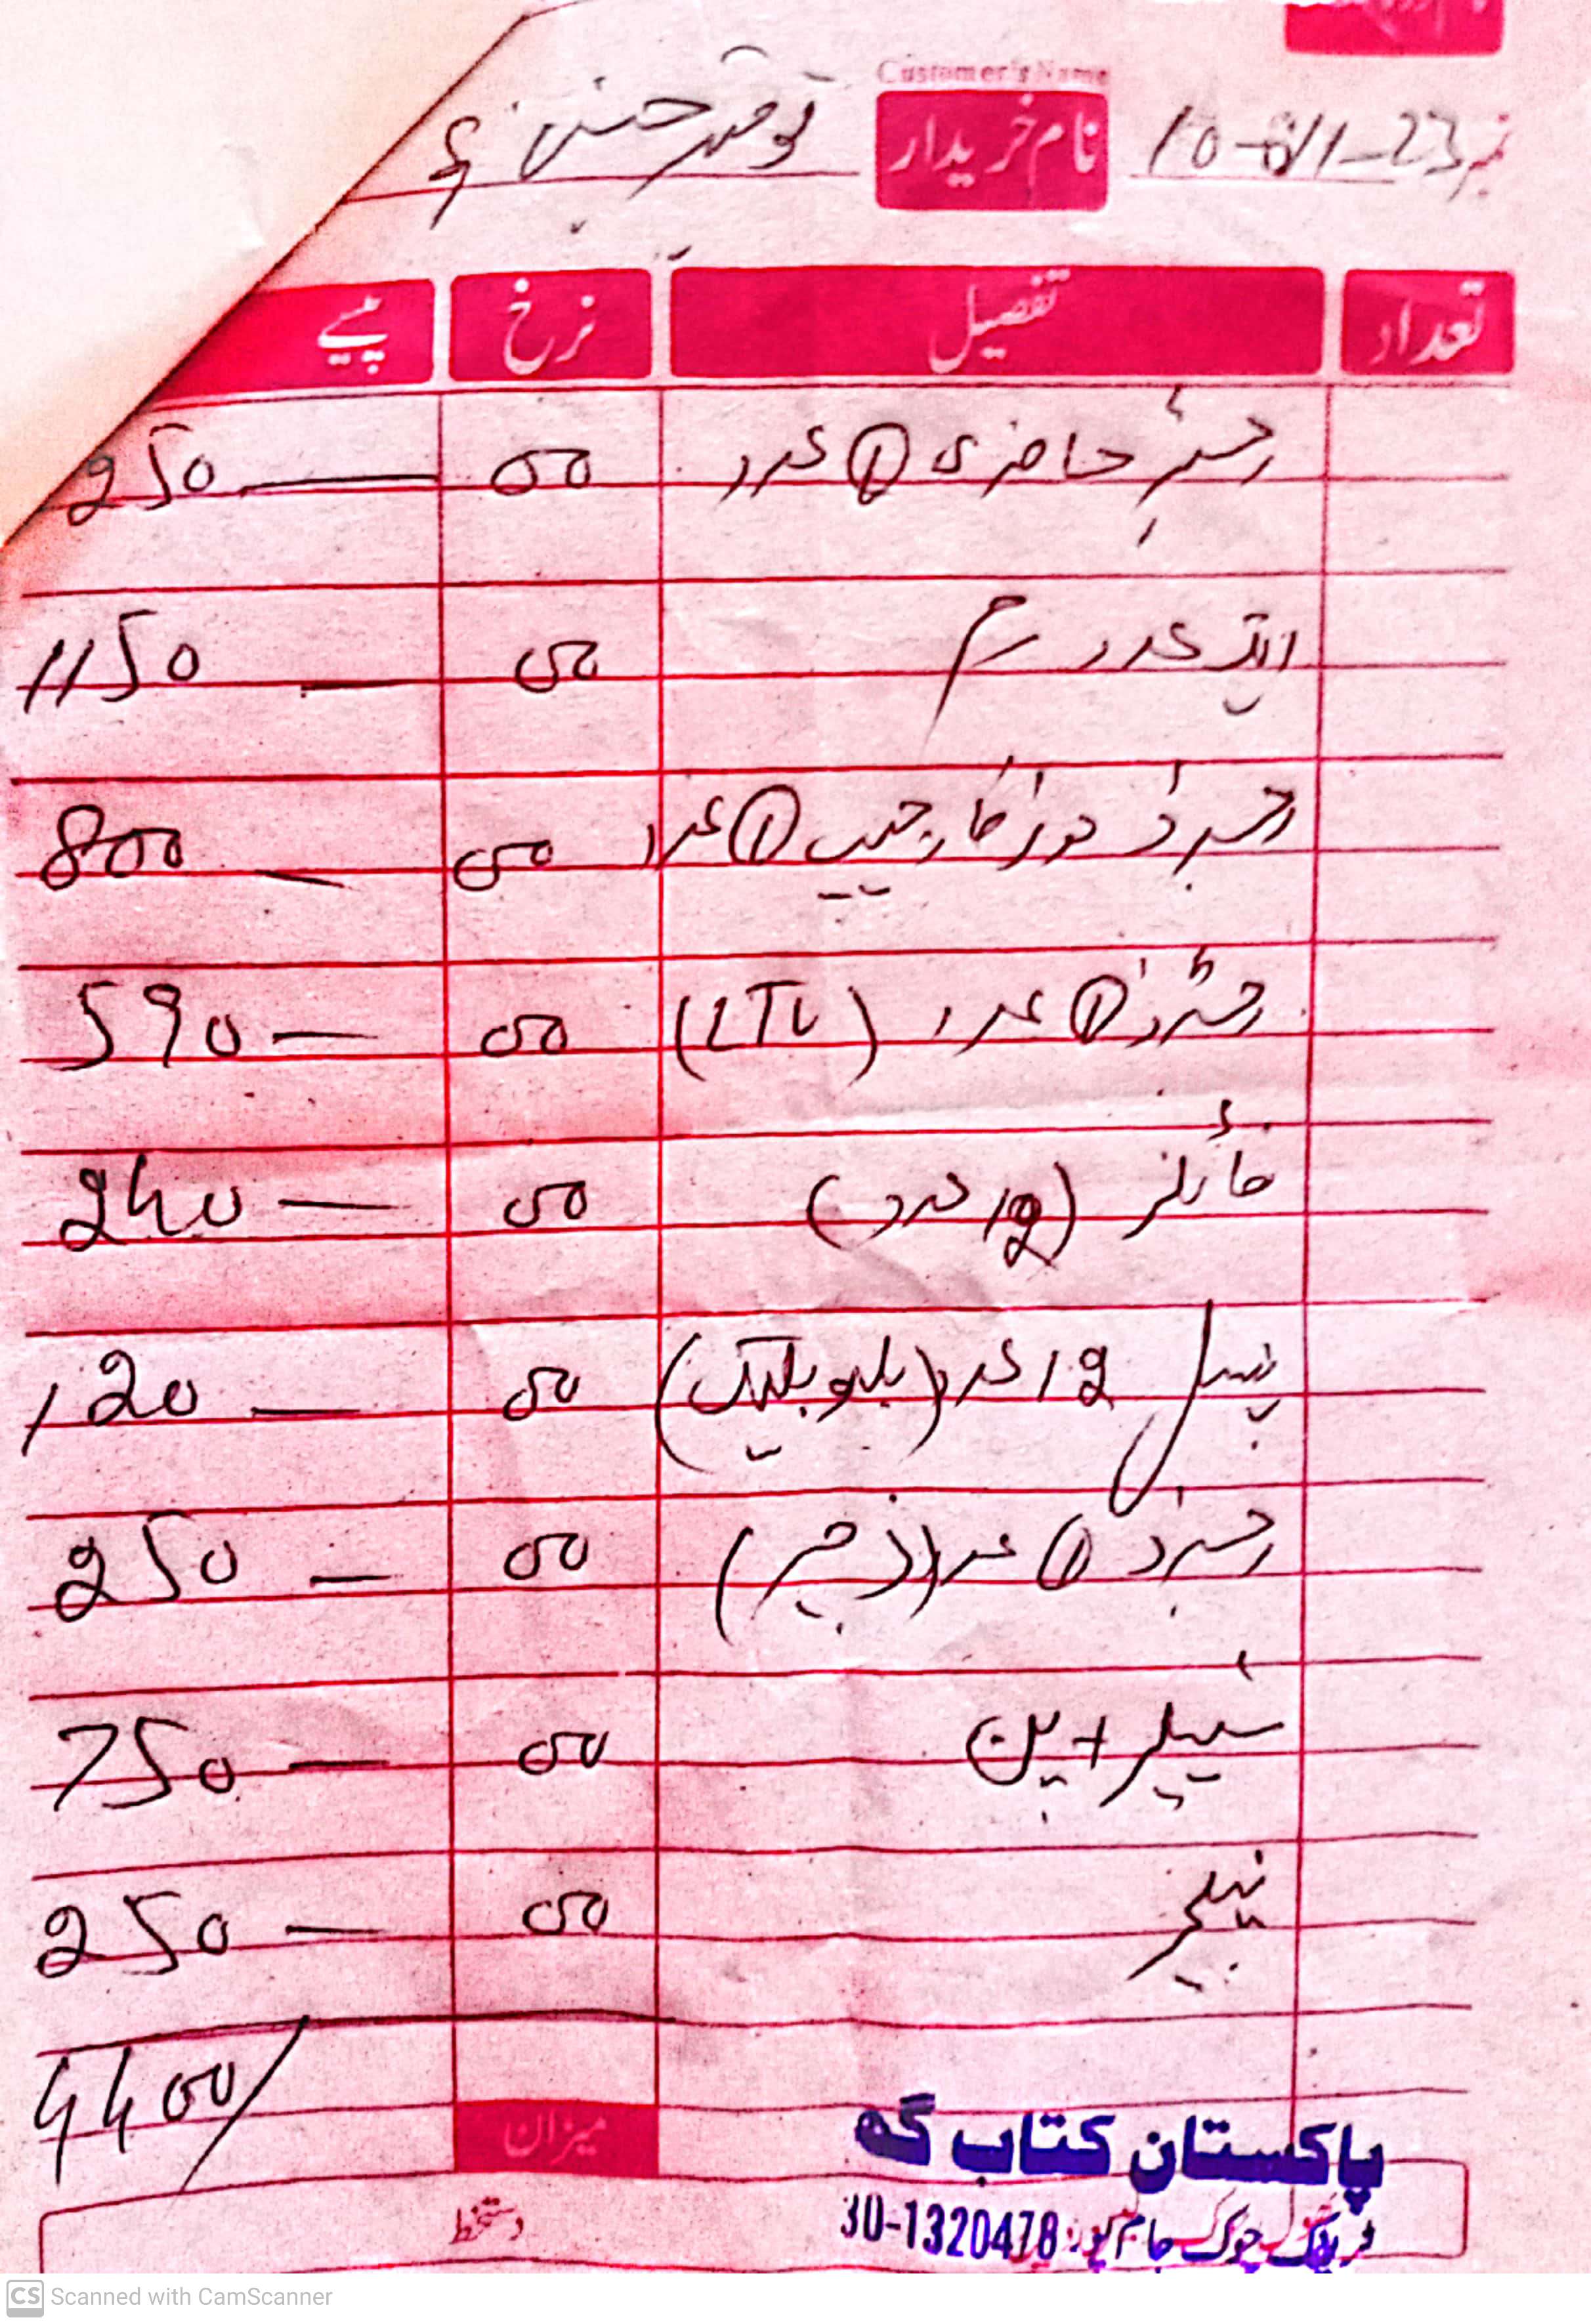 Customer's Name
نمبر 10-01-23 نام خریدار توقیر حسین
تعداد تفصیل نرخ پیسے
رجسٹر حاضری 1 عدد 00 250
ایک عدد رم 00 1150
رجسٹر 1 عدد 00 800
رجسٹر 1 عدد (LTV) 00 590
فائلز (12 عدد) 00 240
پنسل 12 عدد (بلیو بلیک) 00 120
رجسٹر 1 عدد 00 250
سٹیپلر + پن 00 750
00 250
4400/
میزان
پاکستان کتاب گھ
چوک جام پور 30-1320478
دستخط
CS Scanned with CamScanner